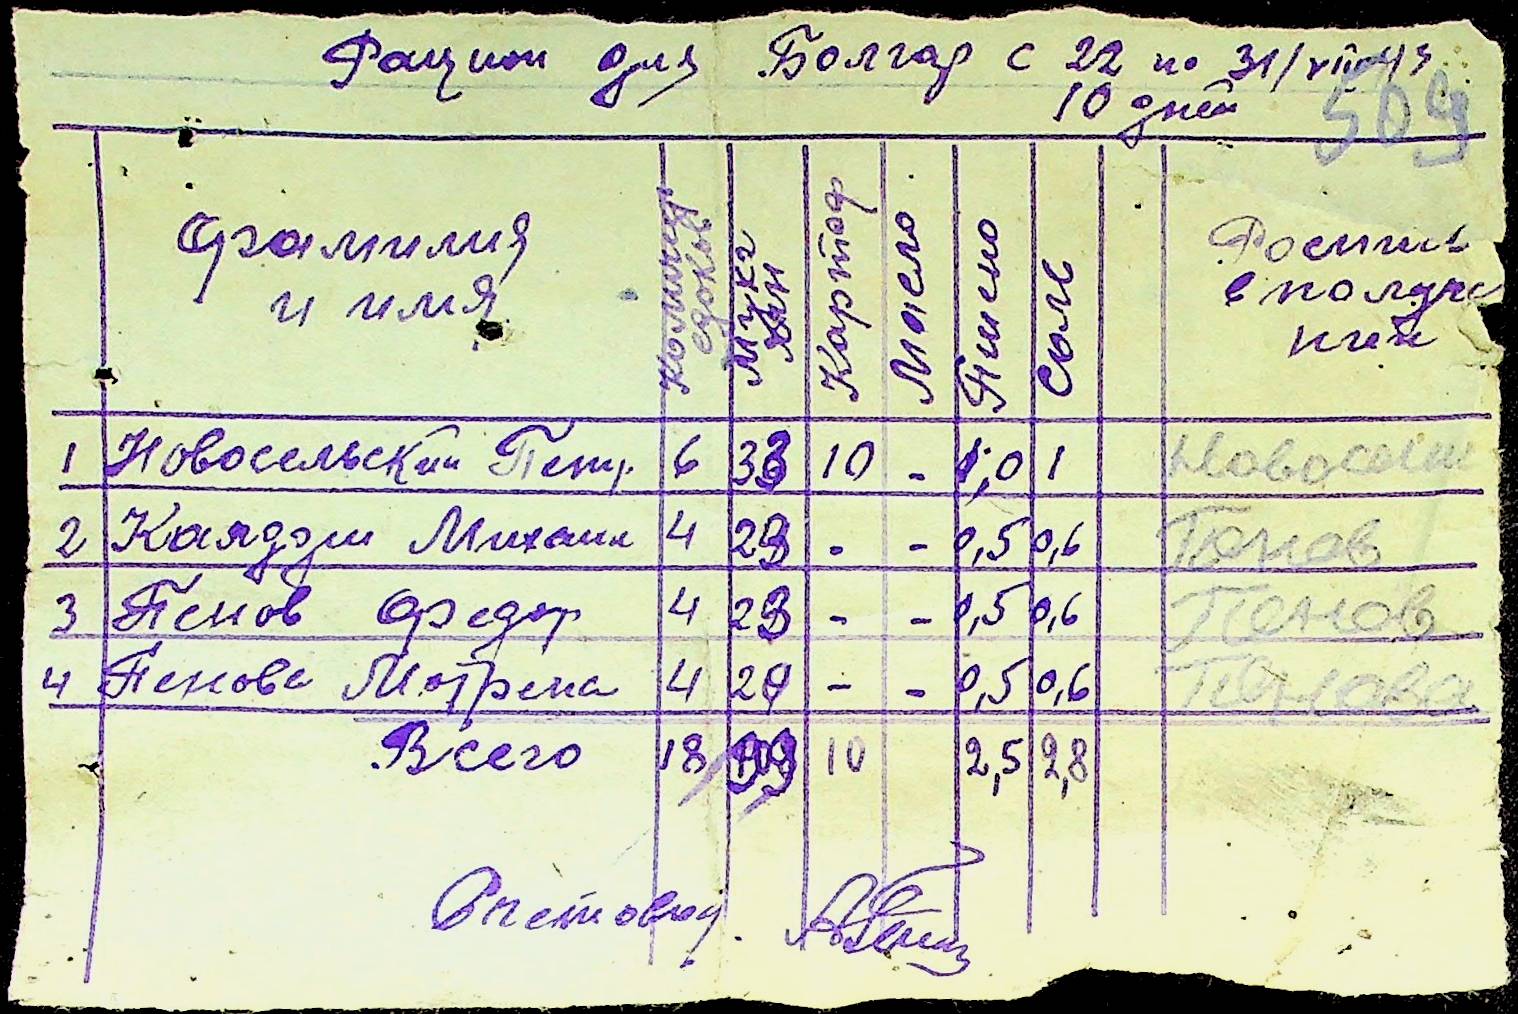 Рацион для Болгар с 22 по 31/VIII
10 дней
509
Фамилия и имя Количест едоков Мука Картоф Масло Пшено Соль Роспись в получении
1 Новосельский Петр 6 33 10 - 1,0 1 Новосель
2 Михаил 4 23 - - 0,5 0,6 Пенов
3 Пенов Федор 4 23 - - 0,5 0,6 Пенов
4 Пенова Мотрена 4 20 - - 0,5 0,6 Пенова
Всего 18 10 2,5 2,8
Счетовод